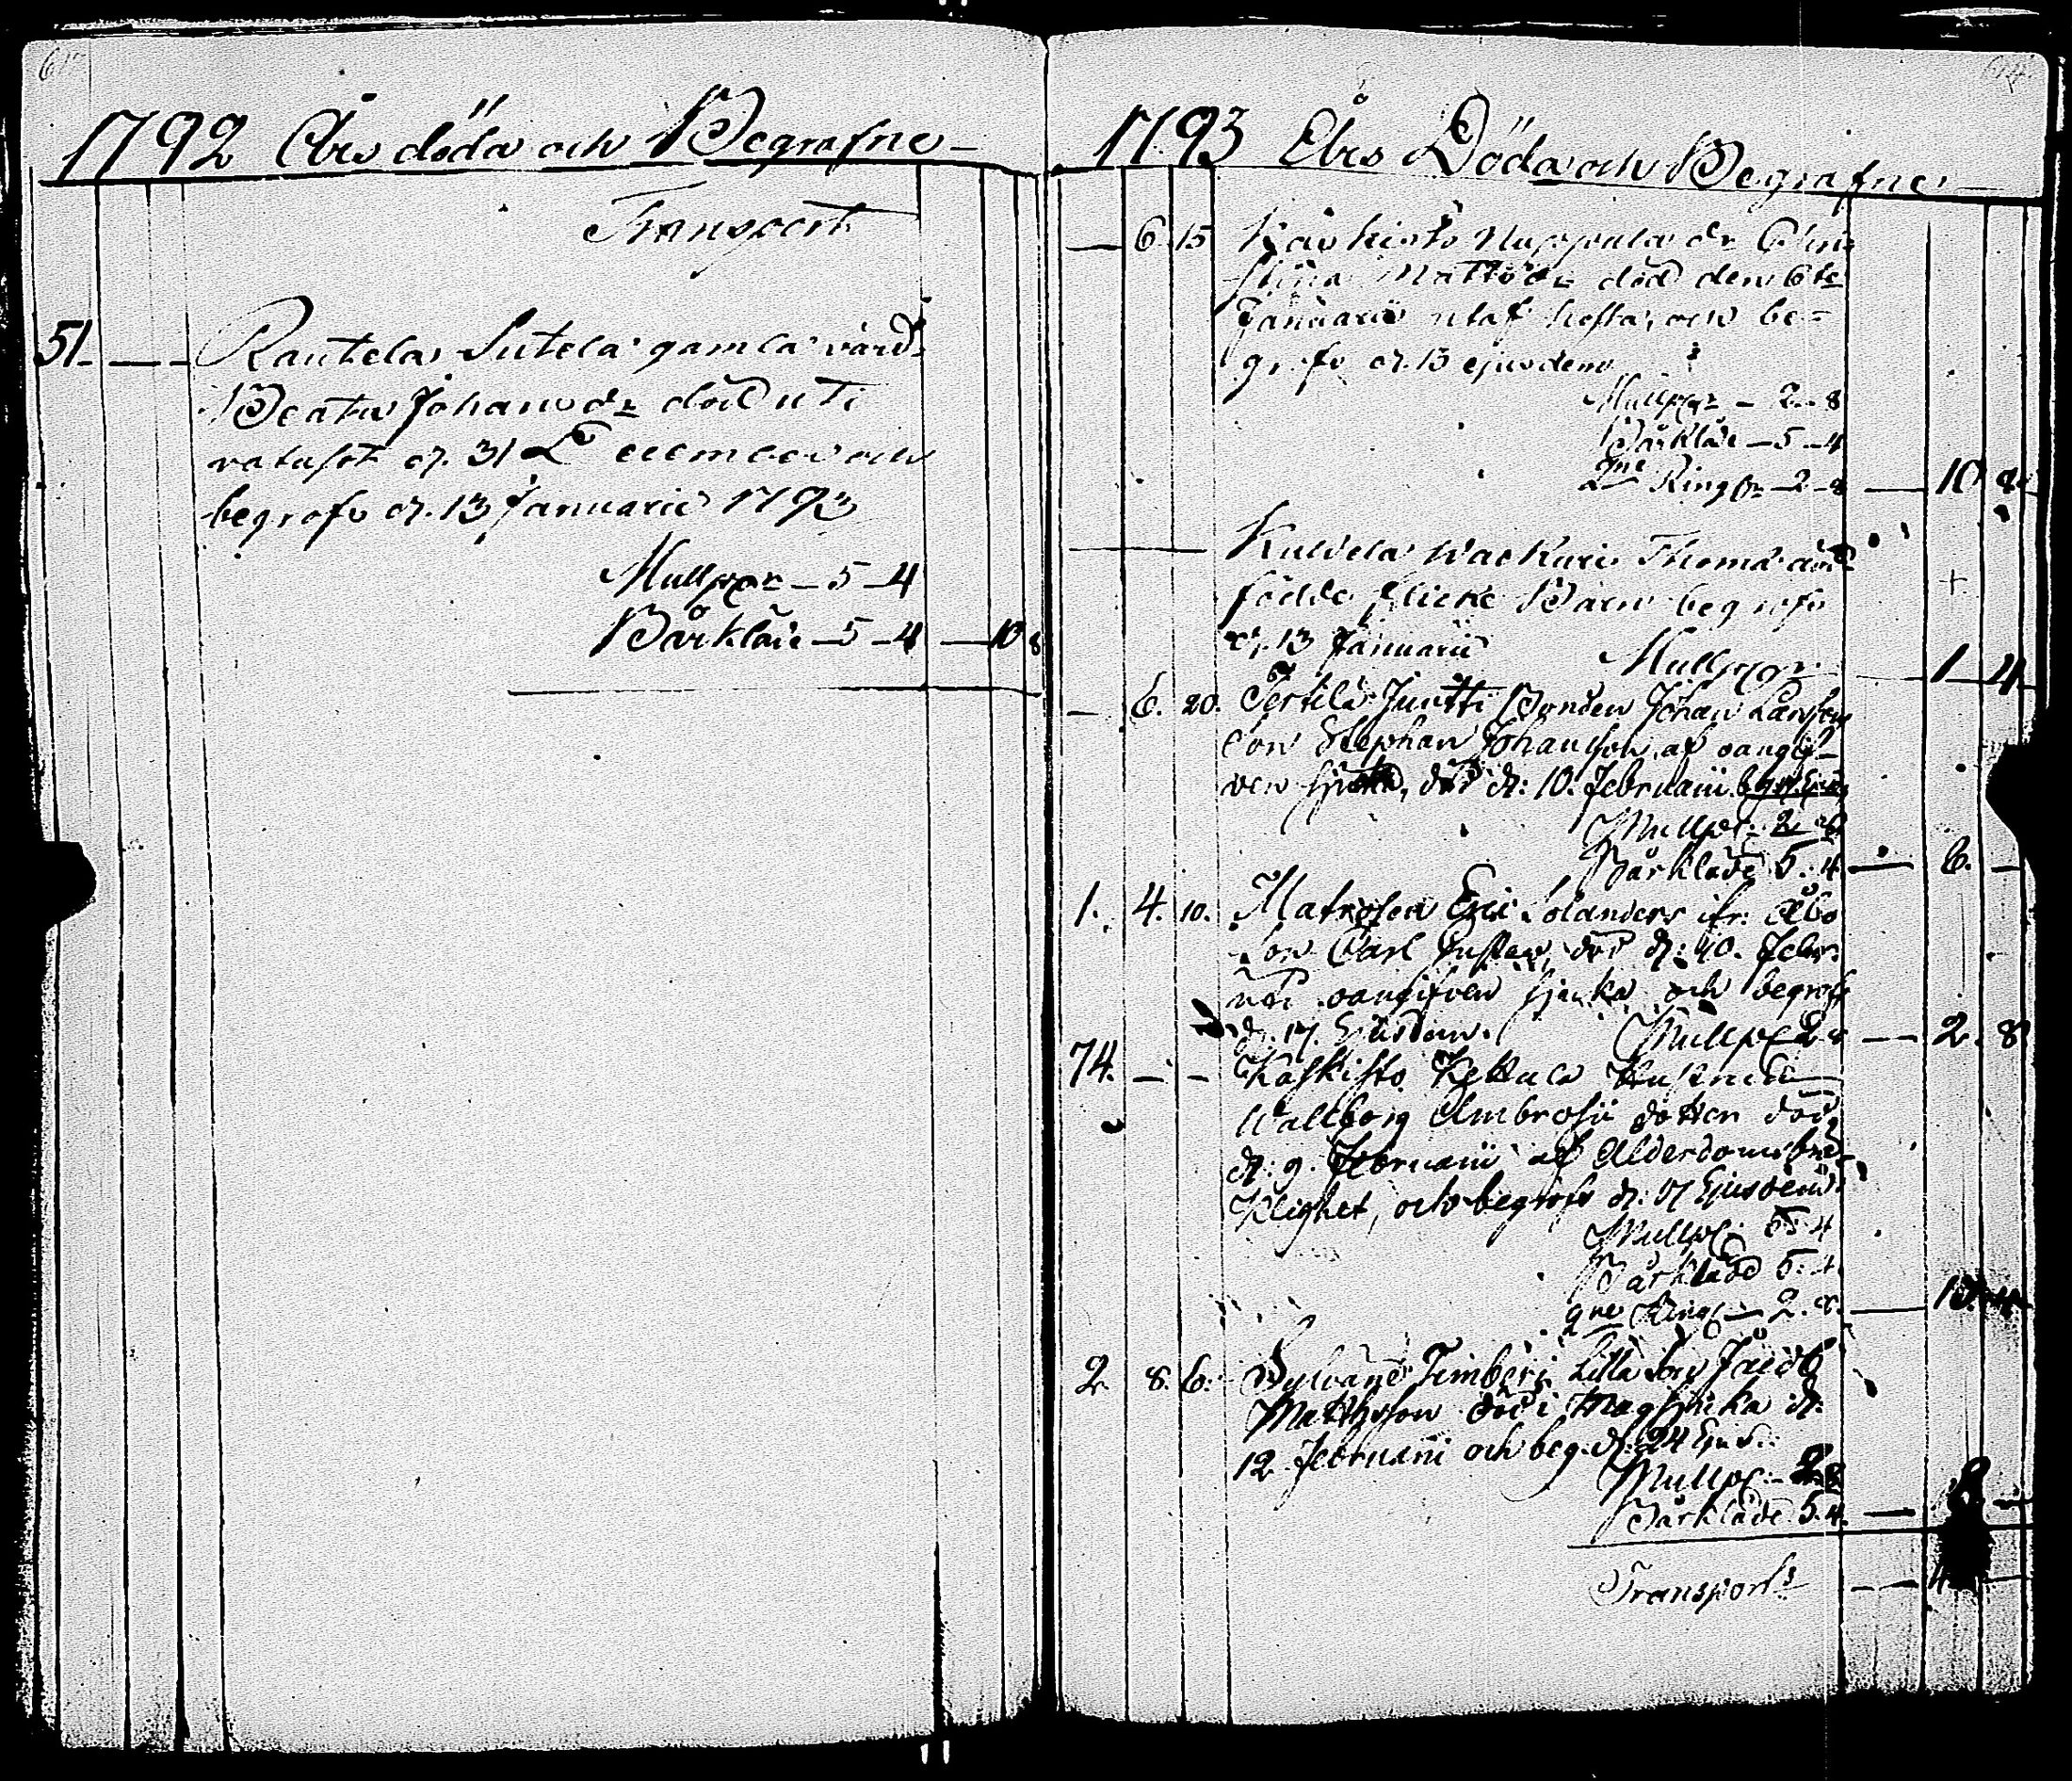 1792 Åhrs döda och Begrafne
Transport
51 — — Rautela Sutela gamla värd:
Beata Johansdr död uti
vatusot d. 31 December och
begrafs d. 13 Januarii 1793
Mullpgr — 5 — 4
Bårkläde — 5 — 4 — 10 8
1793 Åhrs Döda och Begrafne
— 6 15 Kaskisto Nuppula dr Chri
stina Mattsdr död den 6te
Januarii utaf hosta, och be-
grofs d. 13 ejusdem
Mullpgr — 2 — 8
Bårkläde — 5 — 4
2ne Ringgr — 2 — 8 — 10 8
Kuldela Thomas död
födde flicke Barn begrofs
d. 13 Januarii Mullpgr 1 4
— 6. 20. Tertila Juntti Bonden Johan Larssons
Son Stephan Johansson af oangif-
ven sjuka, död d: 10. Februarii
Mullpg: 2 8
Bårkläde 5. 4 — 6. —
1. 4. 10. Matrosen Eric Solanders ifr: Åbo
Son Carl Gustav, död d: 10. Febr.
oangifven sjuka och begrofs
d. 17. Ejusdem. Mullpg 2 8 — 2. 8
74. — — Kaskisto Kettula
Wallborg Ambrosii dotter död
d: 9. Februarii af Ålderdoms bräc
klighet, och begrofs d: 17 Ejusdem.
Mullpg: 5. 4
Bårkläde 5. 4
2ne Ring — 2. 8. — 13. 4
2 8. 6. Timberi Lilla Son Jacob
Mattsson död i Magsjuka d:
12 Februarii och beg. d: 24 Ejusd.
Mullpg: — 2 8
Bårkläde 5. 4. — 8 —
Transport